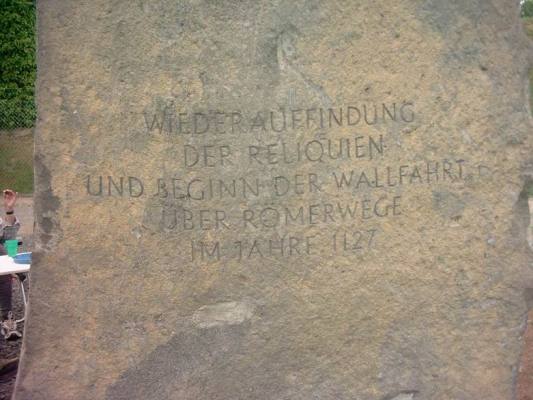 WIEDERAUFFINDUNG
DER RELIQUIEN
UND BEGINN DER WALLFAHRT
ÜBER RÖMERWEGE
IM JAHRE 1127